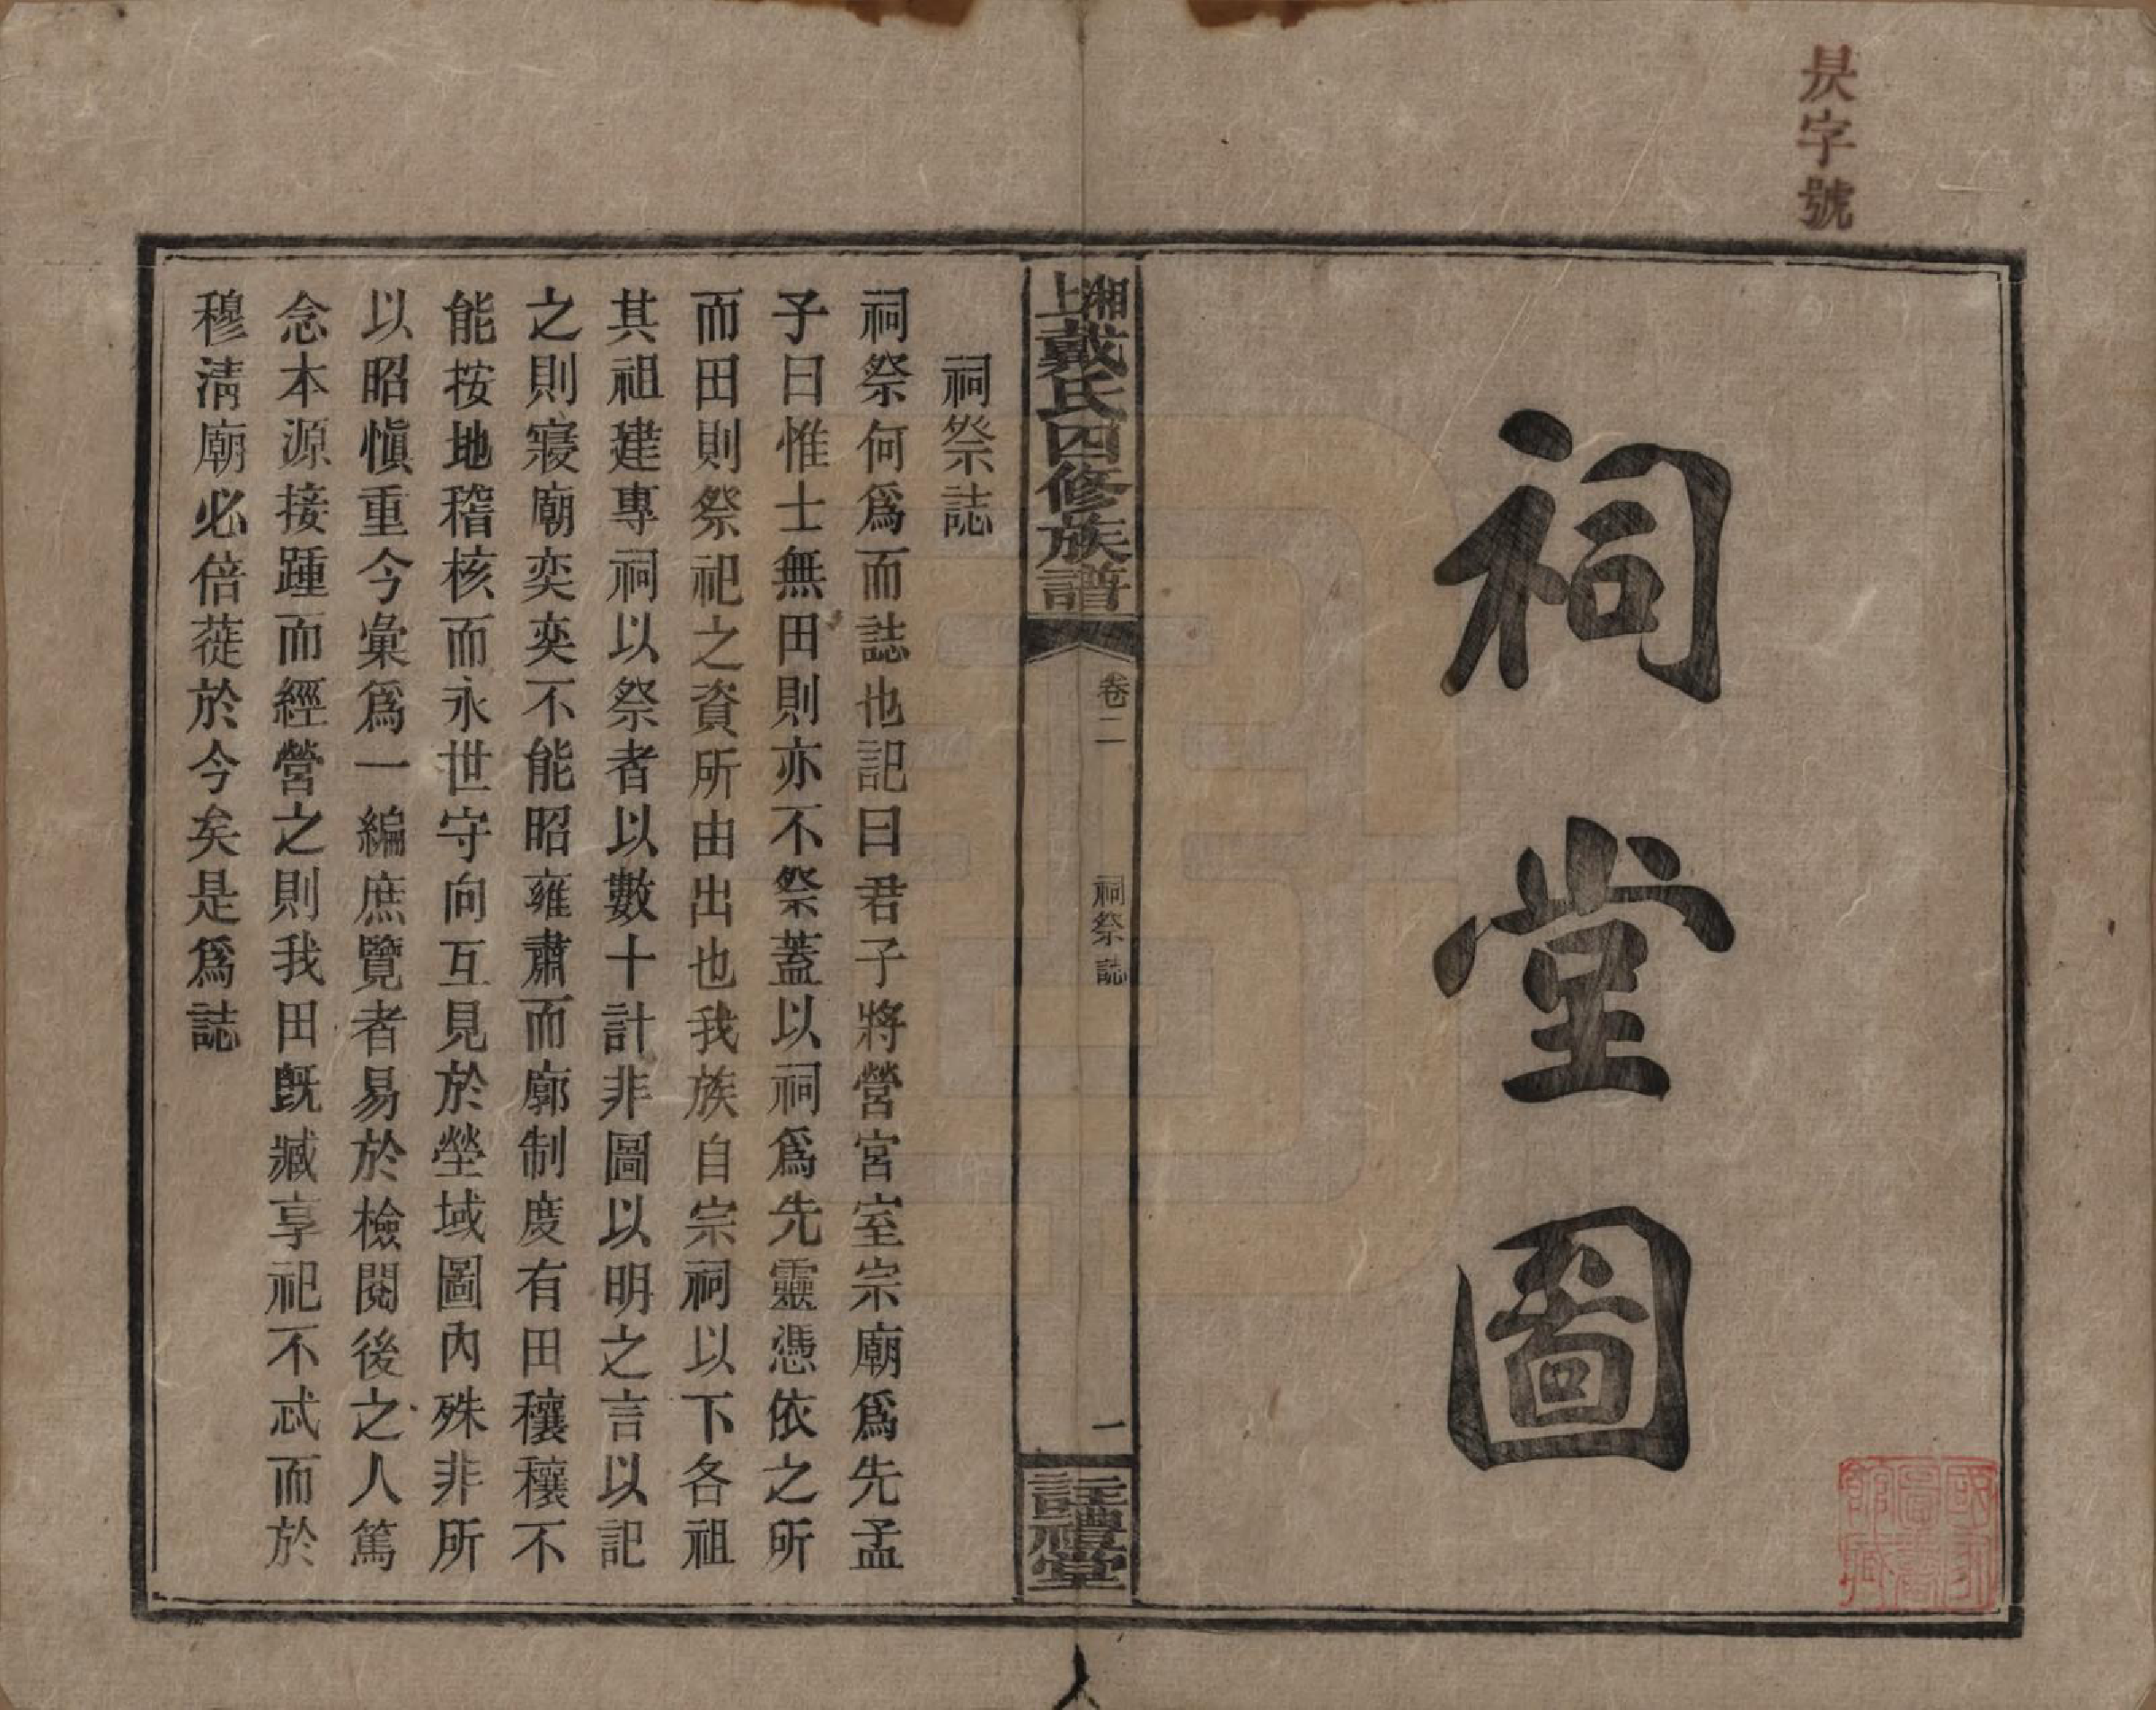 昃字號
祠堂圖
國家圖書館藏
湘上戴氏四修族譜
卷二
祠祭誌
一
註禮堂
祠祭誌
祠祭何爲而誌也記曰君子將營宮室宗廟爲先孟
子曰惟士無田則亦不祭蓋以祠爲先靈憑依之所
而田則祭祀之資所由出也我族自宗祠以下各祖
其祖建專祠以祭者以數十計非圖以明之言以記
之則寢廟奕奕不能昭雍肅而廓制度有田穰穰不
能按地稽核而永世守向互見於塋域圖內殊非所
以昭愼重今彙爲一編庶覽者易於檢閱後之人篤
念本源接踵而經營之則我田旣臧享祀不忒而於
穆淸廟必倍蓰於今矣是爲誌